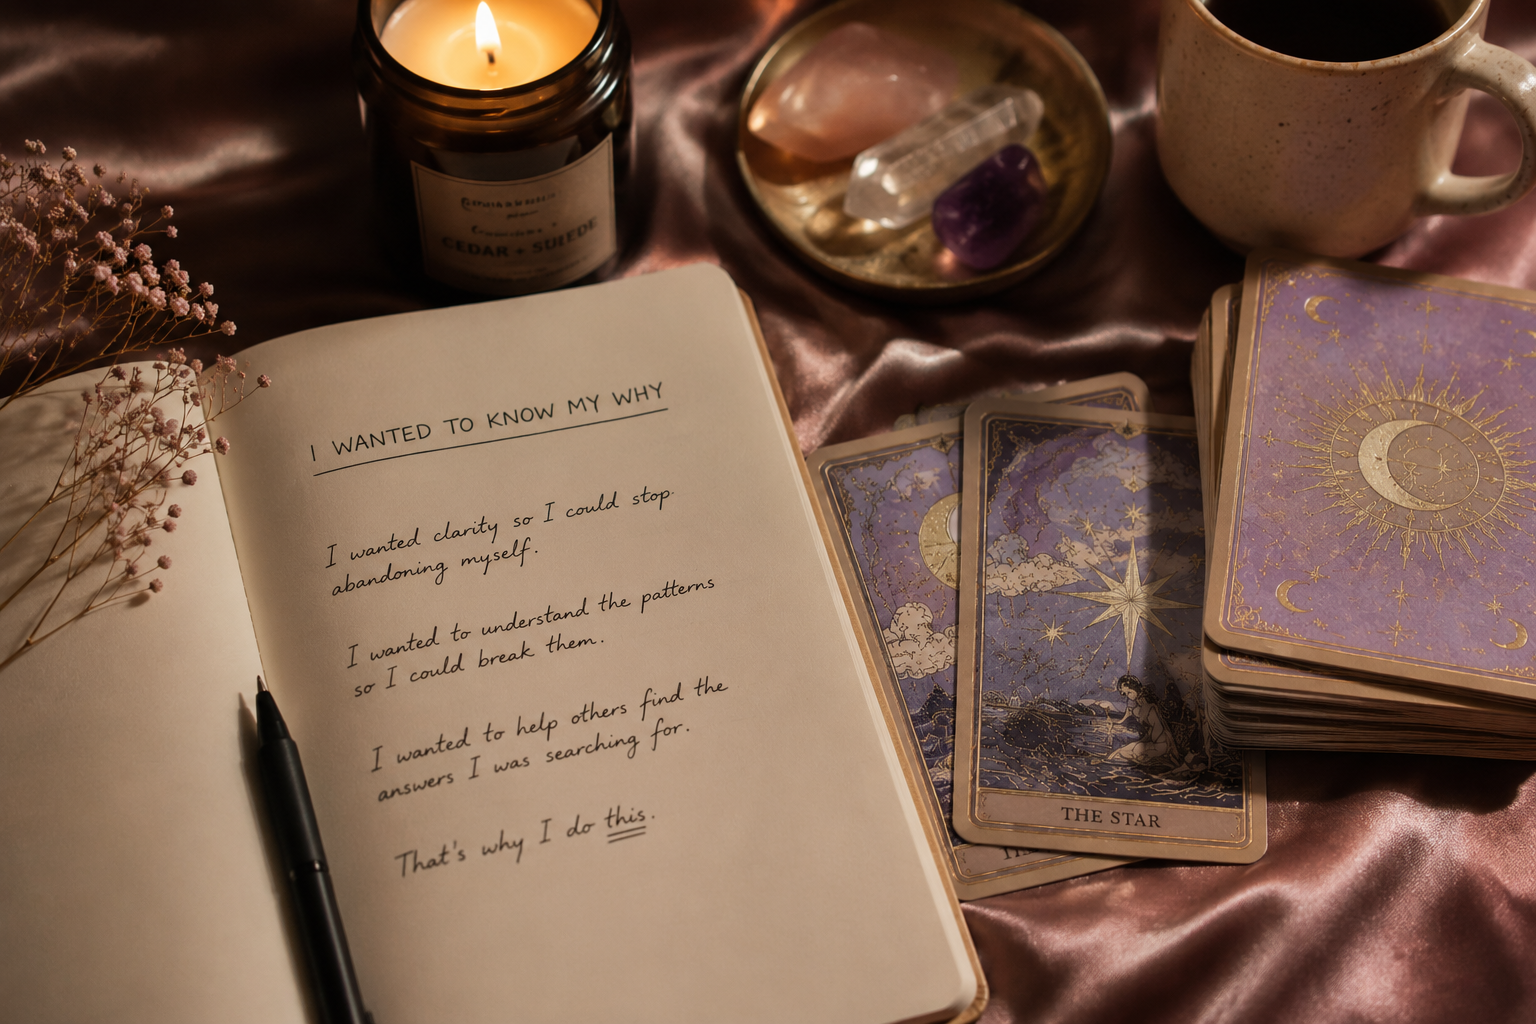 CEDAR + SUEDE
I WANTED TO KNOW MY WHY
I wanted clarity so I could stop
abandoning myself.
I wanted to understand the patterns
so I could break them.
I wanted to help others find the
answers I was searching for.
That's why I do this.
THE STAR